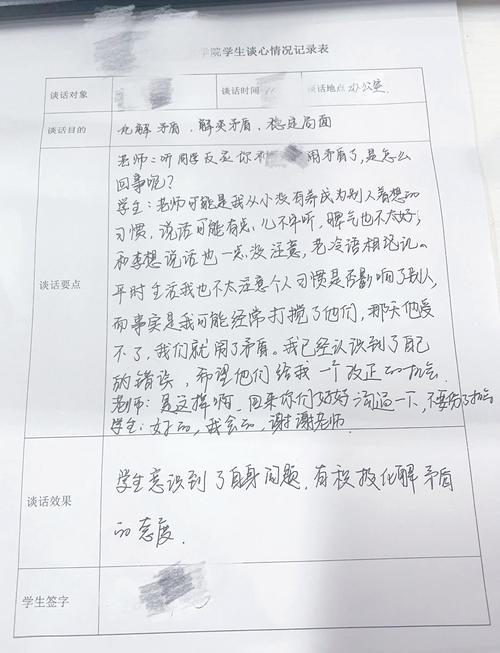 学院学生谈心情况记录表
谈话对象 谈话时间 谈话地点 办公室
谈话目的 化解矛盾、解决矛盾、稳定局面
老师:听同学反应你和 用矛盾了,是怎么
回事呢?
学生:老师可能是我从小没有养成为别人着想的
习惯,说话可能有点儿不中听,脾气也不太好;
和李想说话也一点没注意,老冷语相讥讥。
平时生活我也不太注意个人习惯是否影响了别人,
而事实是我可能经常打搅了他们,那天他受
不了,我们就用了矛盾。我已经认识到了自己
的错误,希望他们给我一个改正的机会。
老师:是这样啊,回来你们好好沟通一下,不要伤了和气
学生:好的,我会的,谢谢老师.
谈话要点
谈话效果
学生意识到了自身问题,有积极化解矛盾
的态度.
学生签字